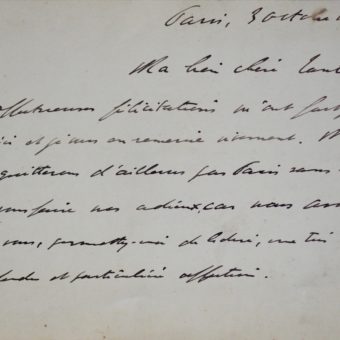 Paris, 3 octobr
Ma bien chère Tant
ffectueuses félicitations m'ont fort
ici et je vous en remercie vivement. N
quitterons d'ailleurs pas Paris sans
faire nos adieux, car nous
vous, permettez-moi de le dire, une très
et particulière affection.